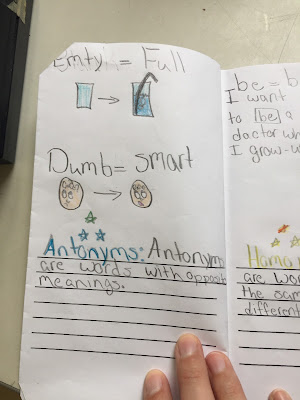 Emty = Full
Dumb = smart
Antonyms: Antonym
are words with opposit
meanings.
be = b
I want
to be a
doctor wh
I grow-u
Homo
are wor
the sam
different